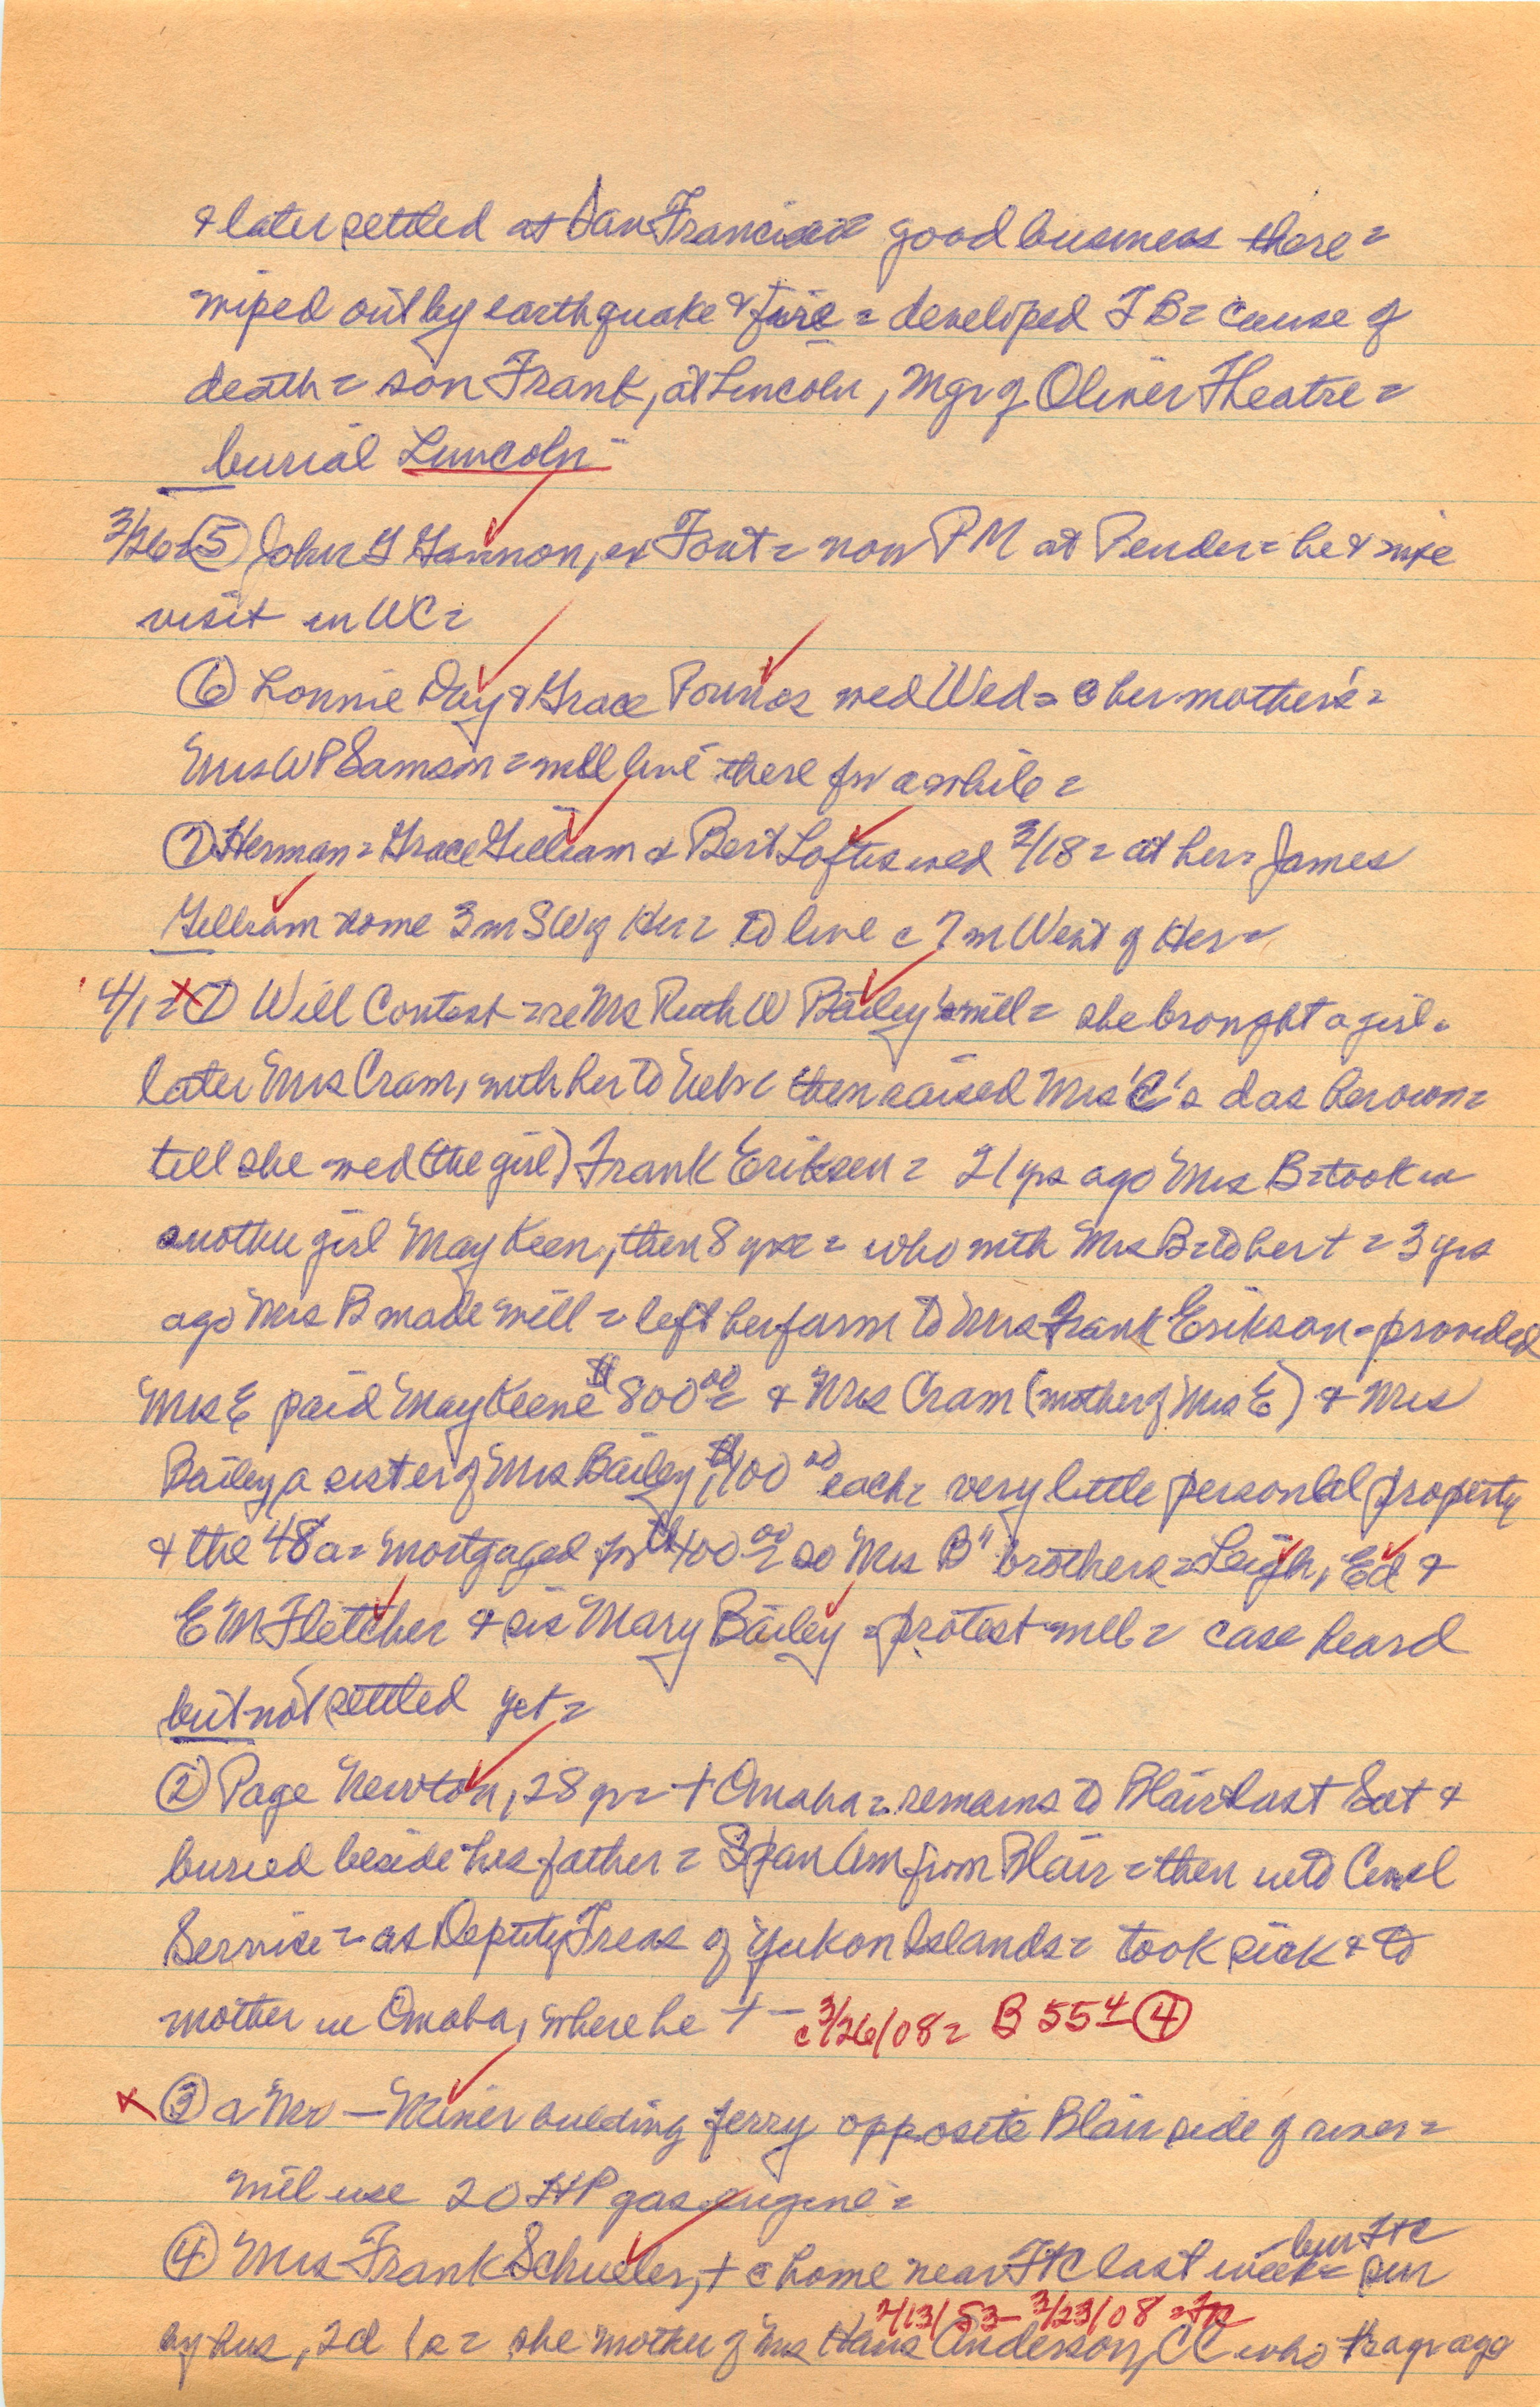 & later settled at San Francisco = good business there =
wiped out by earthquake & fire = developed TB = cause of
death = son Frank, at Lincoln, Mgr of Oliver Theatre =
burial Lincoln
3/26 = (5) John G Gannon, ex Font = now PM at Pender = he & wife
visit in WC =
(6) Lonnie Day & Grace wed Wed = @ her mother's =
Mrs W P Samson = will live there for a while =
(7) Herman = Grace Gilliam & Bert Loftis wed 3/18 = at her = James
Gilliam home 3 m SW of Her = to live c 7 m West of Her =
4/1 = (1) Will Contest = re Mrs Ruth W Bailey's will = she brought a girl =
later Mrs Cram, with her to Nebr = then raised Mrs C's d as her own =
till she wed (the girl) Frank Eriksen = 21 yrs ago Mrs B = took in
another girl May Keen, then 8 yrs = who with Mrs B = to her + = 3 yrs
ago Mrs B made will = left her farm to Mrs Frank Erikson = provided
Mrs E paid May Keene $800 00 = & Mrs Cram (mother of Mrs E) & Mrs
Bailey, a sister of Mrs Bailey, $100 00 each = very little personal property
& the 48 a = mortgaged for $400 00 = so Mrs B" brothers = Leigh, Ed &
E M Fletcher & sis Mary Bailey = protest will = case heard
but not settled yet =
(2) Page Newton, 28 yr = + Omaha = remains to Blair last Sat &
buried beside his father = Span Am from Blair = then into Civil
Service = as Deputy Treas of Yukon Islands = took sick & to
mother in Omaha, where he + - c 3/26/08 = B 554 (4)
x (3) a Mr — Miner building ferry opposite Blair side of river =
will use 20 HP gas engine =
(4) Mrs Frank Schueler, + @ home near FtC last week = sur
bur FtC
2/13/53 - 3/23/08 =
by hus, 2d 1s = she mother of Mrs Hans Anderson, CC who yr ago